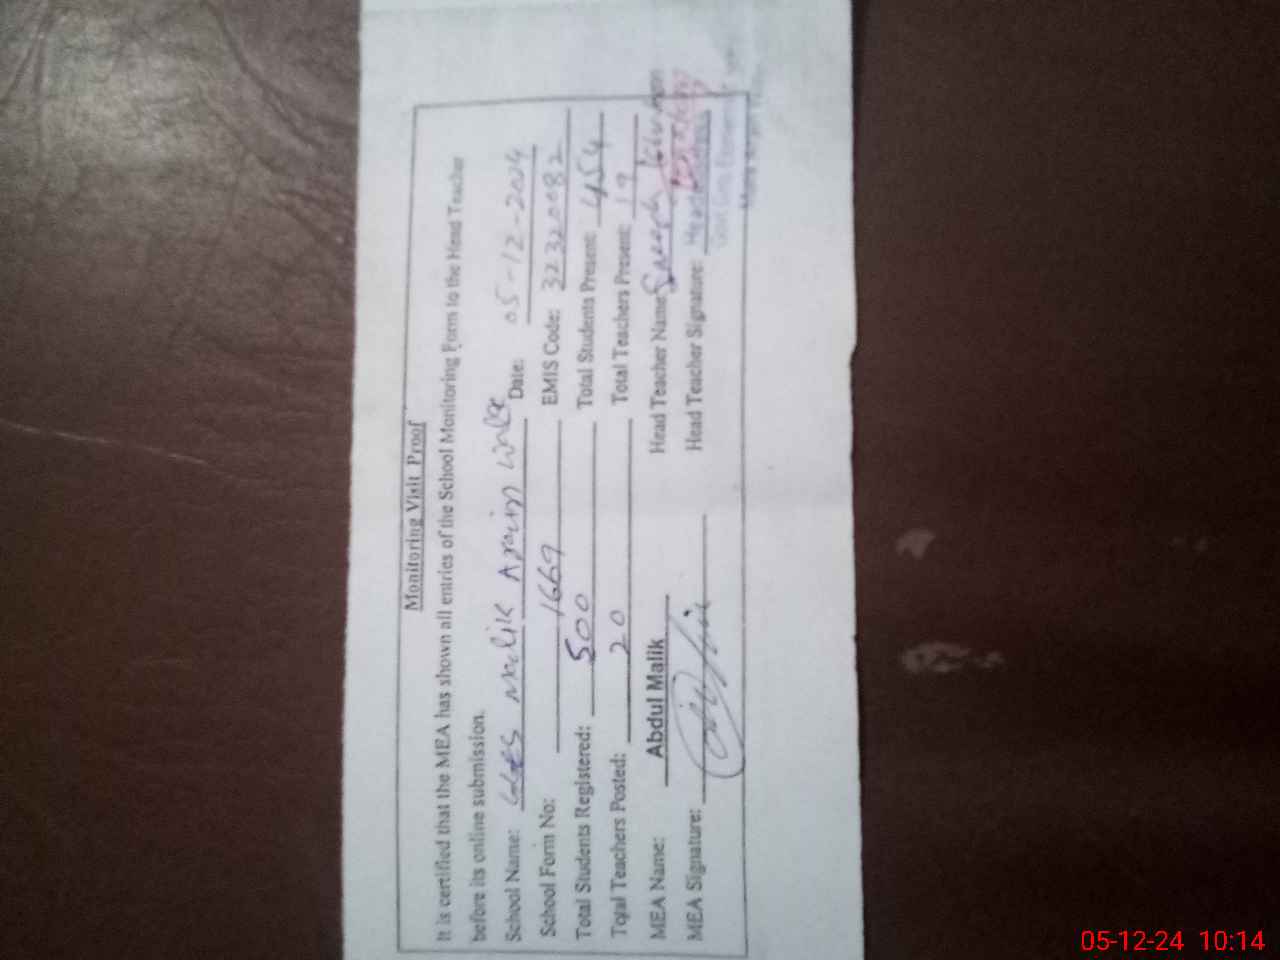 Monitoring Visit Proof
It is certified that the MEA has shown all entries of the School Monitoring Form to the Head Teacher
before its online submission.
School Name: GGES Malik Date: 05-12-2024
School Form No: 1669 EMIS Code: 32320082
Total Students Registered: 500 Total Students Present: 454
Total Teachers Posted: 20 Total Teachers Present: 19
MEA Name: Abdul Malik Head Teacher Name:
MEA Signature: Head Teacher Signature:
05-12-24 10:14